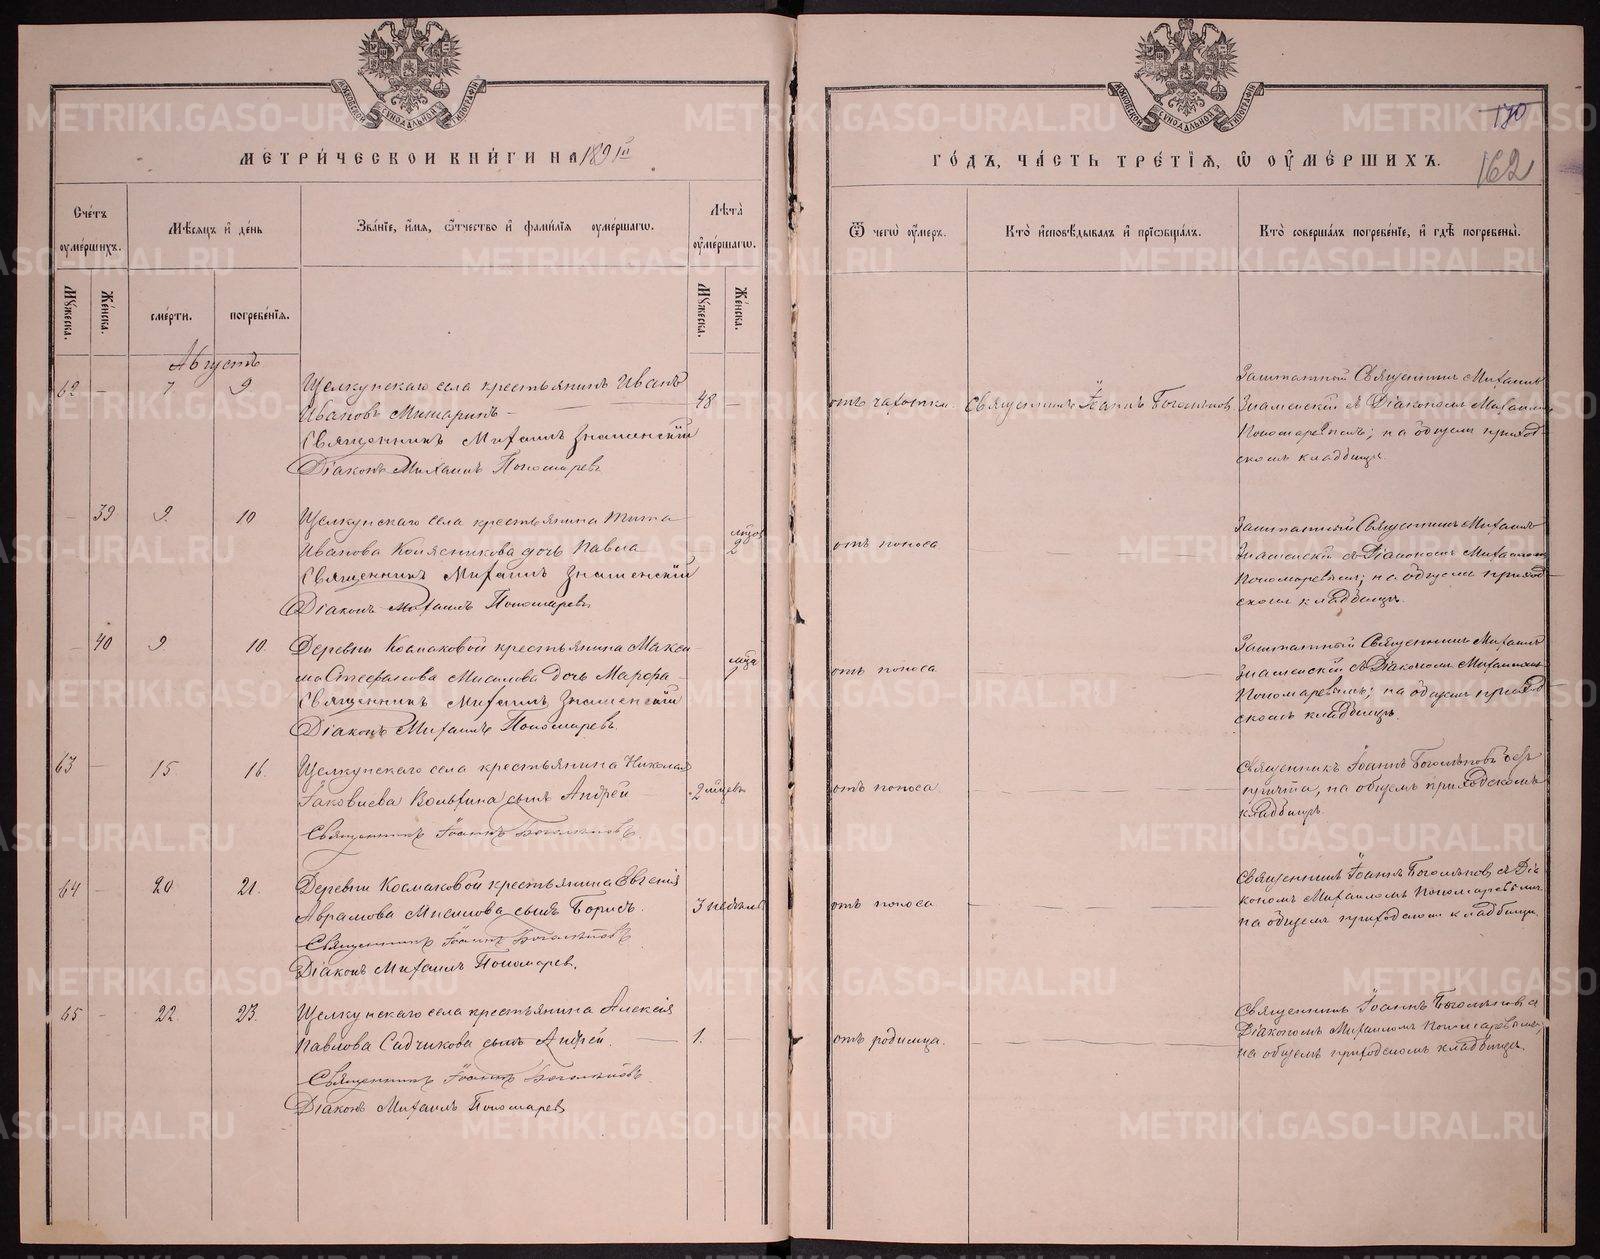 МЕТРИЧЕСКОЙ КНИГИ НА 1891й
Счетъ оумершихъ.
Мѣсяцъ и день
Званіе, имя, ѿчество и фамилія оумершагѡ.
Лѣта оумершагѡ.
Мужеска.
Женска.
смерти.
погребенія.
Мужеска.
Женска.
Августъ
62 — 7 9 Щелкунскаго села крестьянинъ Иванъ
Ивановъ Мишаринъ — 48 —
Священникъ Михаилъ Знаменскій
Діаконъ Михаилъ Пономаревъ
— 39 9. 10 Щелкунскаго села крестьянина Тита
Иванова Колясникова дочь Павла 2
Священникъ Михаилъ Знаменскій
Діаконъ Михаилъ Пономаревъ
— 40 9. 10. Деревни Космаковой крестьянина Макси-
ма Стефанова дочь Марѳа
Священникъ Михаилъ Знаменскій
Діаконъ Михаилъ Пономаревъ.
63 — 15 16. Щелкунскаго села крестьянина Николая
Іаковлева сынъ Андрей 2
Священникъ Іоаннъ Боголѣповъ.
64 — 20 21. Деревни Космаковой крестьянина Евгенія
Аврамова сынъ Борисъ. 3 недѣль
Священникъ Іоаннъ Боголѣповъ
Діаконъ Михаилъ Пономаревъ.
65 — 22. 23. Щелкунскаго села крестьянина Алексія
Павлова Садчикова сынъ Андрей. — 1.
Священникъ Іоаннъ Боголѣповъ.
Діаконъ Михаилъ Пономаревъ
170
162
ГОДЪ, ЧАСТЬ ТРЕТІЯ, Ѡ ОУМЕРШИХЪ.
Ѿ чегѡ оумеръ.
Кто исповѣдывалъ и пріѡбщалъ.
Кто совершалъ погребеніе, и гдѣ погребены.
Заштатный Священникъ Михаилъ
отъ чахотки. Священникъ Іоаннъ Боголѣповъ. Знаменскій съ Діакономъ Михаиломъ
Пономаревымъ; на общемъ приход-
скомъ кладбищѣ.
Заштатный Священникъ Михаилъ
отъ поноса — Знаменскій съ Діакономъ Михаиломъ
Пономаревымъ; на общемъ приход-
скомъ кладбищѣ.
Заштатный Священникъ Михаилъ
отъ поноса — Знаменскій съ Діакономъ Михаиломъ
Пономаревымъ; на общемъ приход-
скомъ кладбищѣ.
Священникъ Іоаннъ Боголѣповъ безъ
отъ поноса. — причта, на общемъ приходскомъ
кладбищѣ.
Священникъ Іоаннъ Боголѣповъ съ Діа-
отъ поноса — кономъ Михаиломъ Пономаревымъ
на общемъ приходскомъ кладбищѣ.
Священникъ Іоаннъ Боголѣповъ съ
отъ родимца. — Діакономъ Михаиломъ Пономаревымъ
на общемъ приходскомъ кладбищѣ.
METRIKI.GASO-URAL.RU